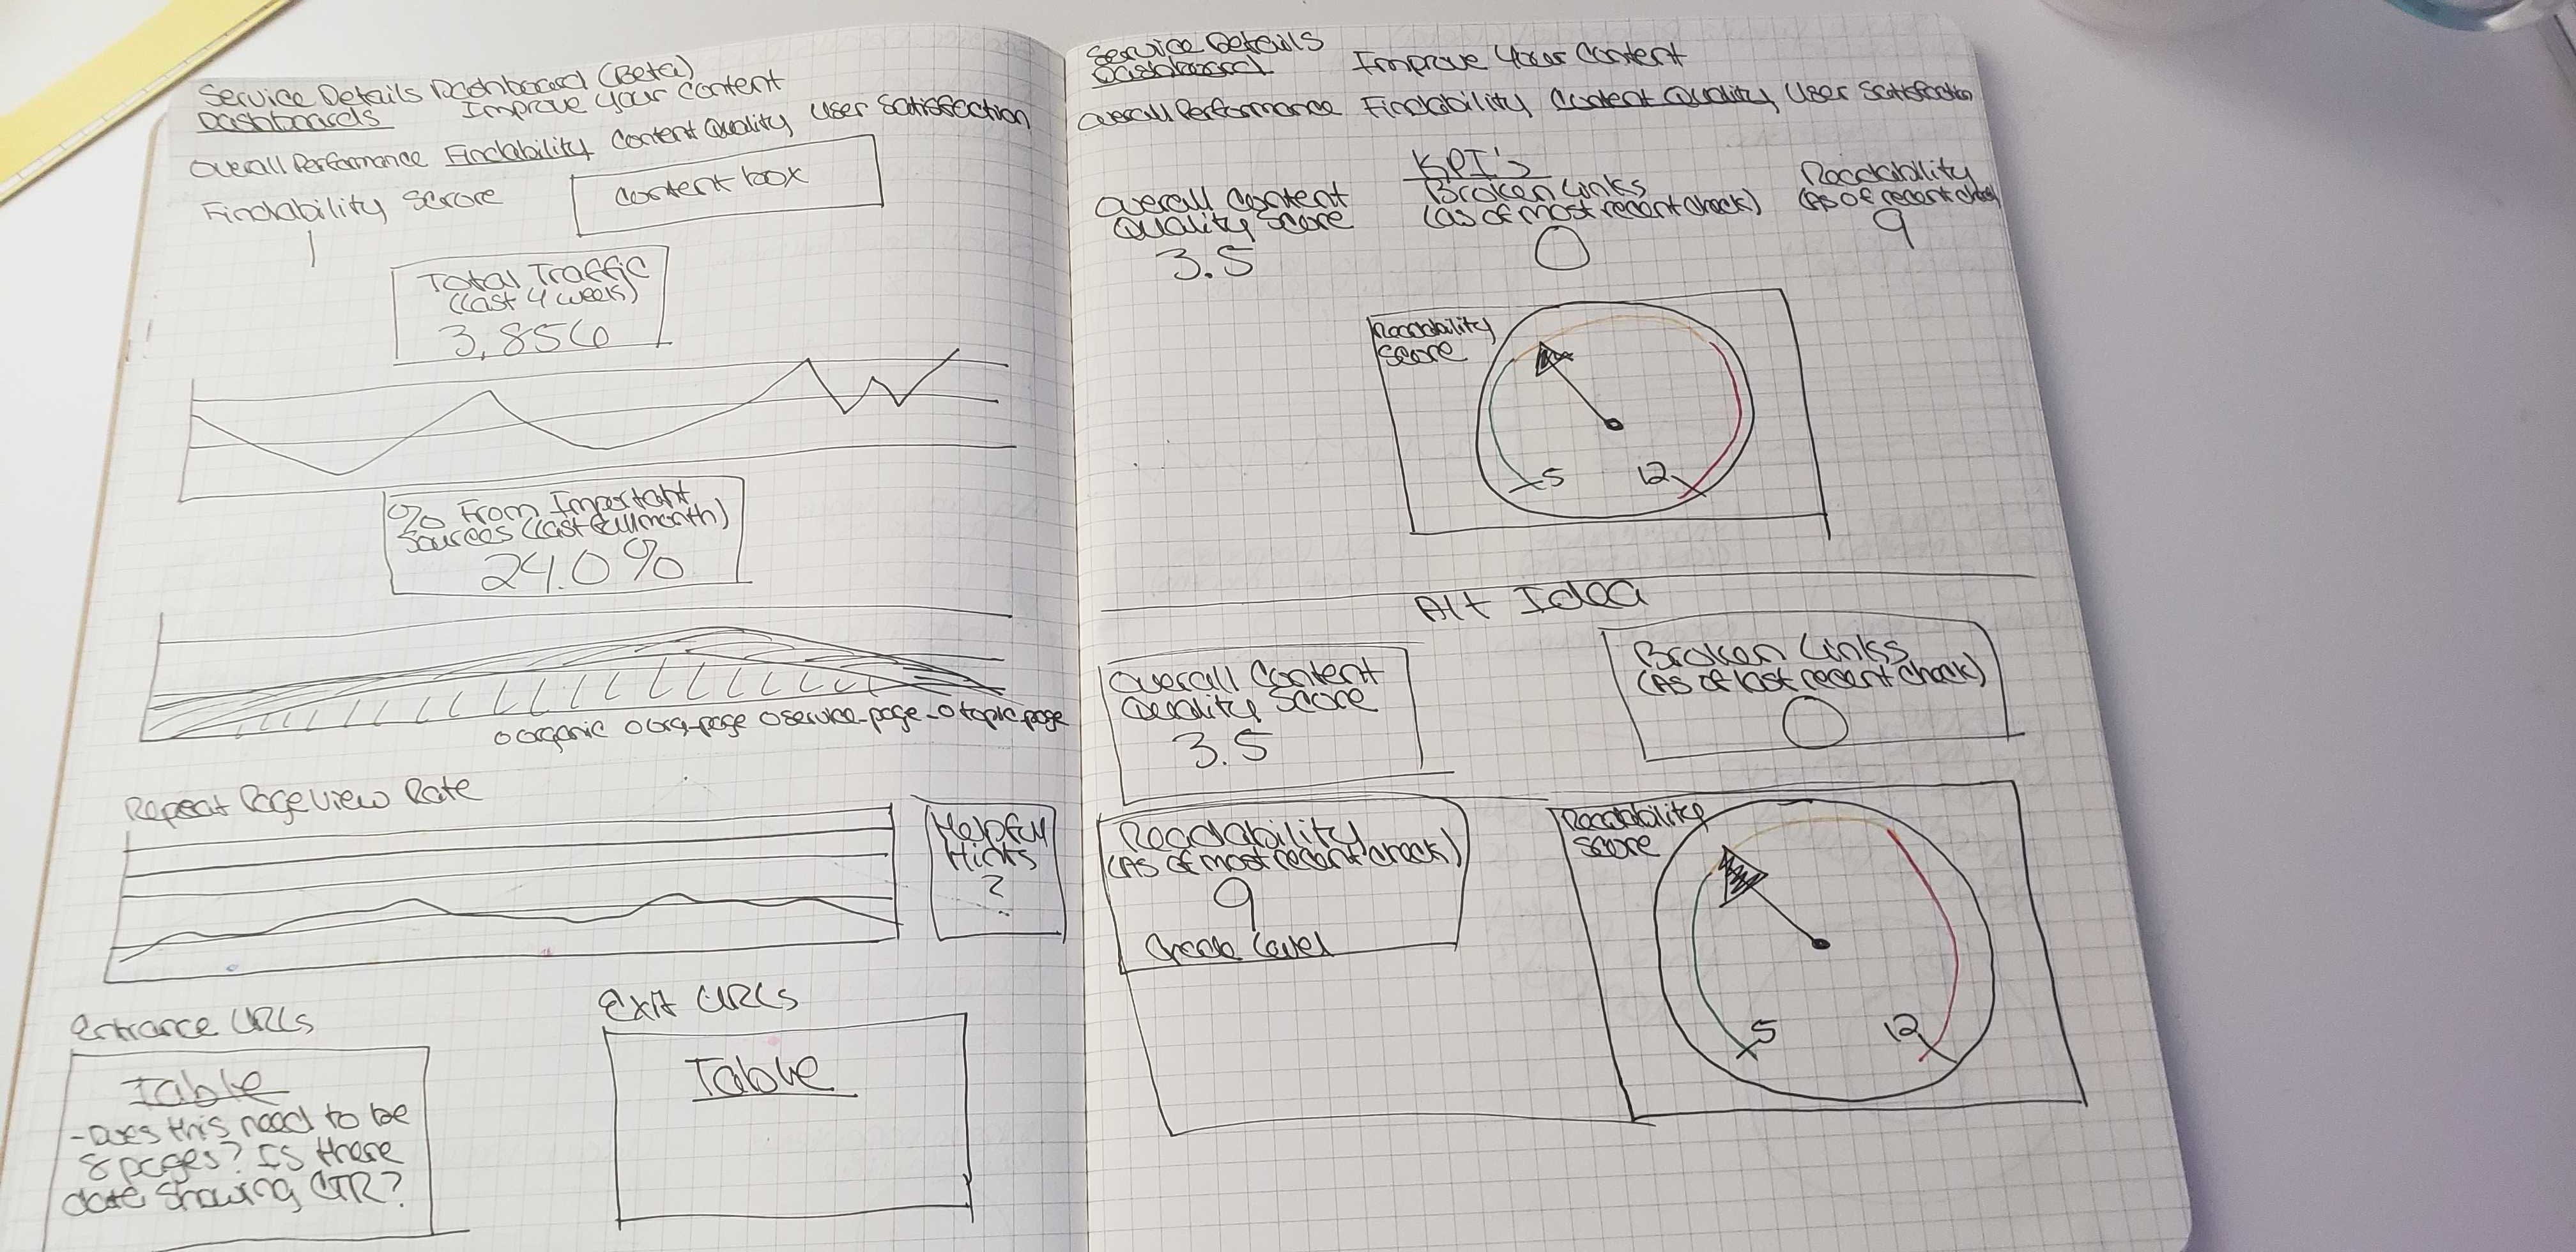 Service Details Dashboard (Beta)
Dashboards Improve your content
Overall Performance Findability Content Quality User Satisfaction
Findability Serore
1
content box
Total Traffic
(last 4 week)
3,856
% From Important
Sources (last full month)
24.0%
o organic o org-page o service-page-o topic-page
Repeat Pageview Rate
Helpful
Hints
?
Entrance URLs
Table
- Does this need to be
8 pages? Is there
data showing CTR?
Exit URLs
Table
Service Details
Dashboard Improve Your Content
Overall Performance Findability Content Quality User Satisfaction
KPI's
Overall Content
Quality Score
3.5
Broken Links
(as of most recent check)
0
Readability
(As of recent check)
9
Readability
Score
5 12
Alt Idea
Overall Content
Quality Score
3.5
Broken Links
(As of last recent check)
0
Readability
(As of most recent check)
9
Grade Level
Readability
Score
5 12